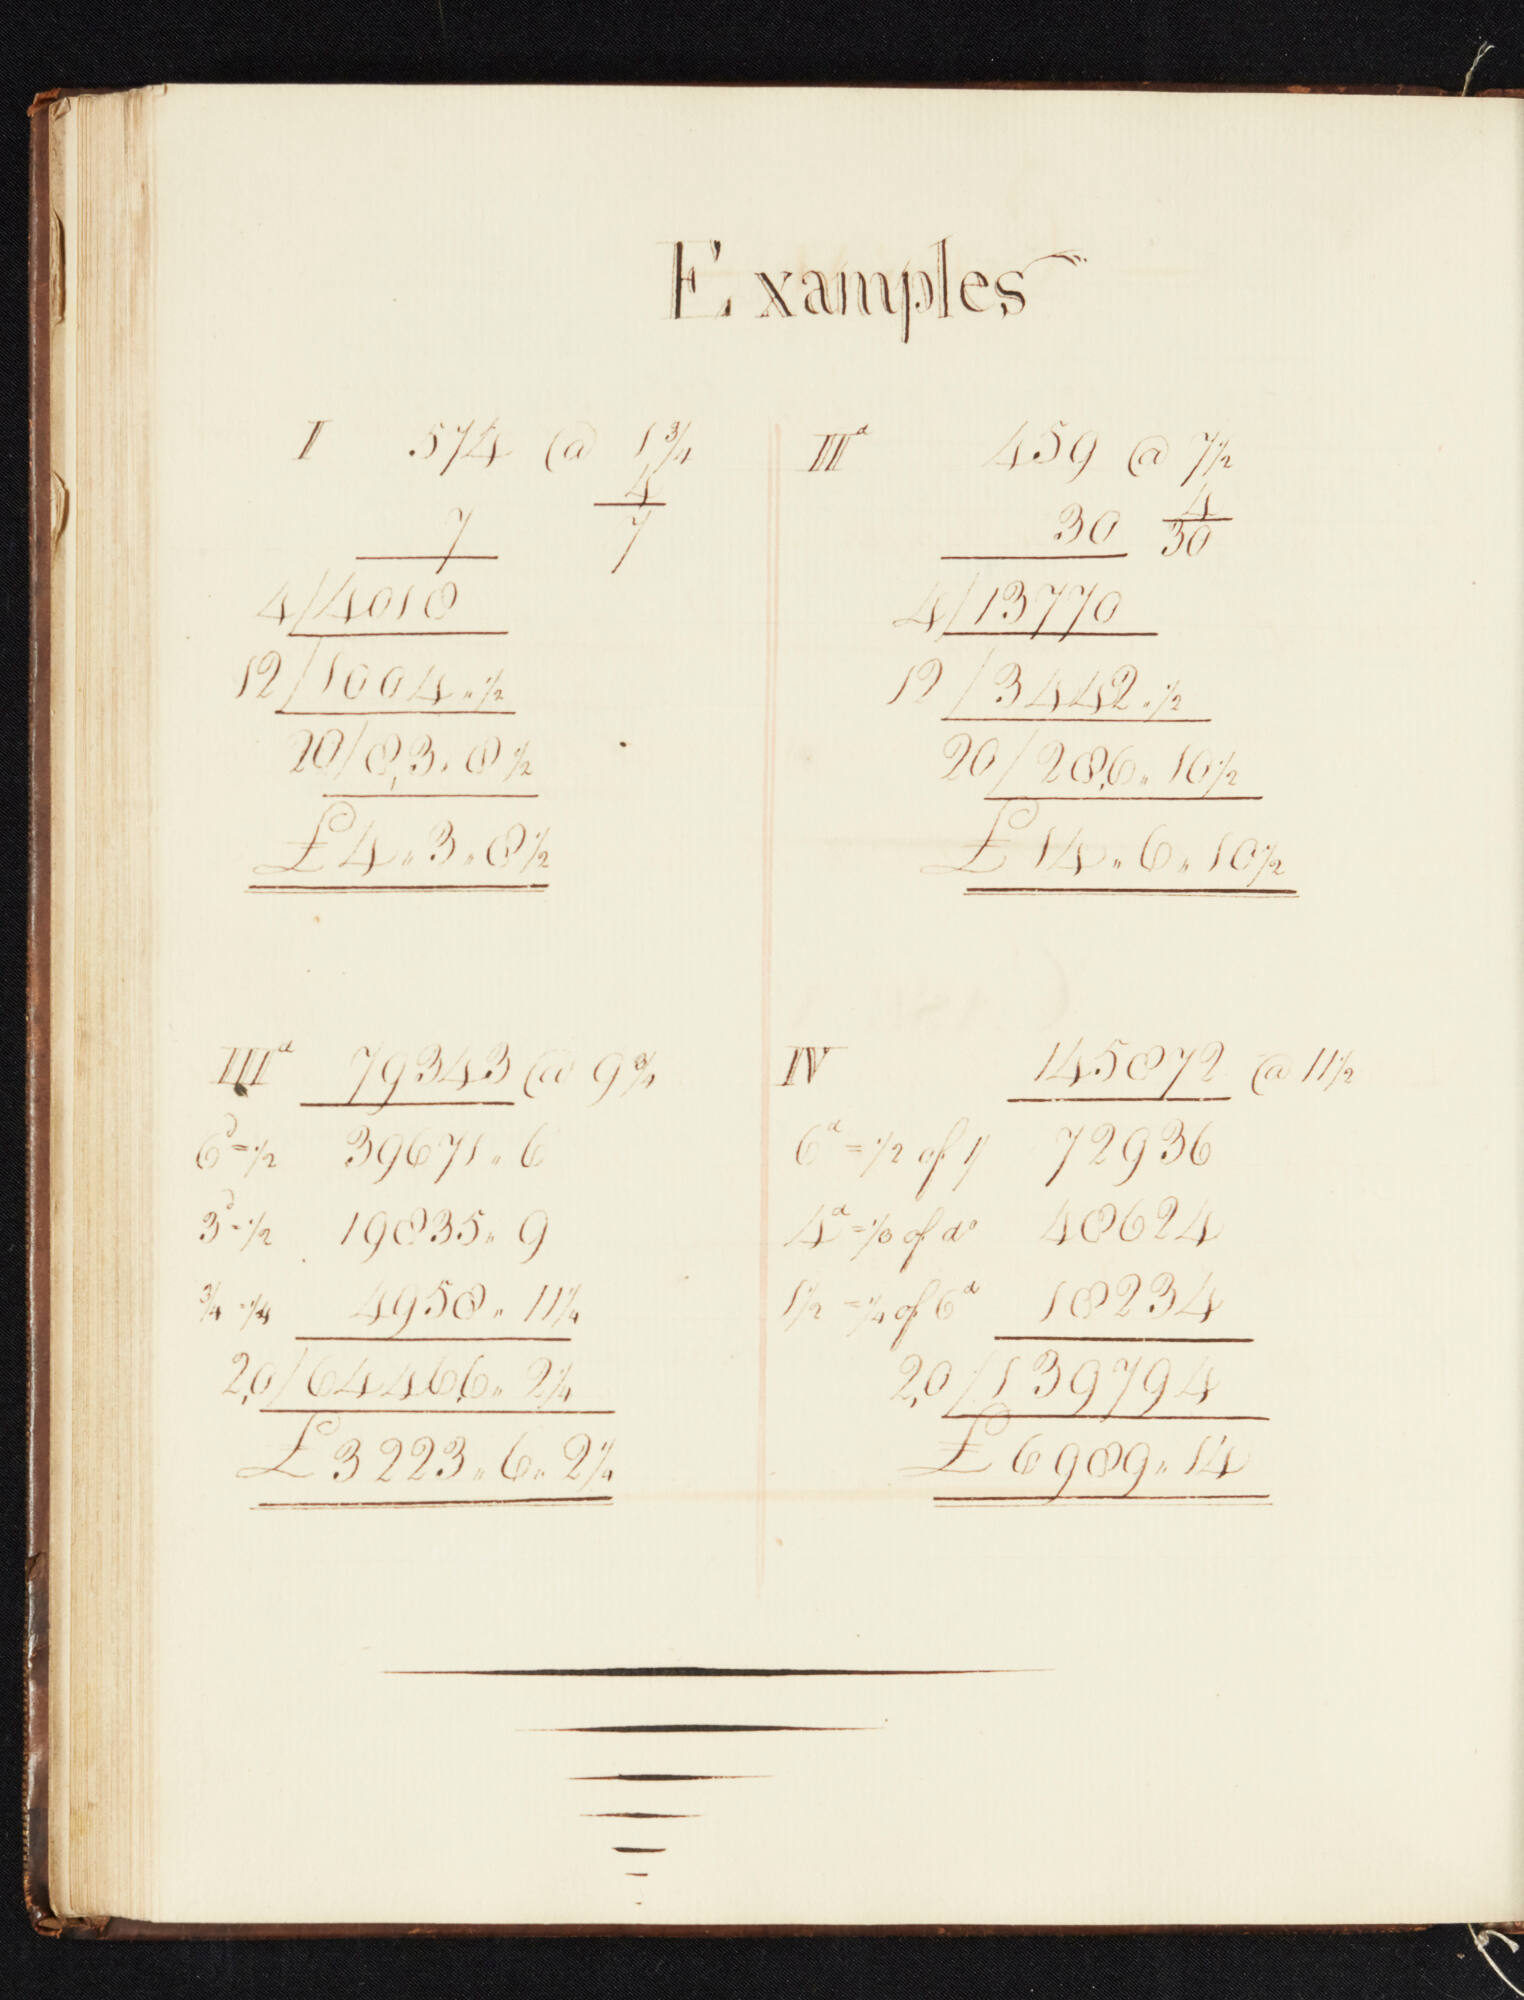 Examples
I 574 @ 1¾
4
7 7
4/4018
12/1004„½
20/8,3„8½
£4„3„8½
IIᵈ 459 @ 7½
4
30 30
4/13770
12/3442„½
20/28,6„10½
£14„6„10½
IIIᵈ 79343 @ 9¾
6ᵈ=½ 39671„6
3ᵈ=½ 19835„9
¾=¼ 4958„11¼
2,0/6446,6„2¼
£3223„6„2¼
IV 145872 @ 11½
6ᵈ=½ of 1/ 72936
4ᵈ=⅓ of dᵒ 48624
1½=¼ of 6ᵈ 18234
2,0/139794
£6989„14